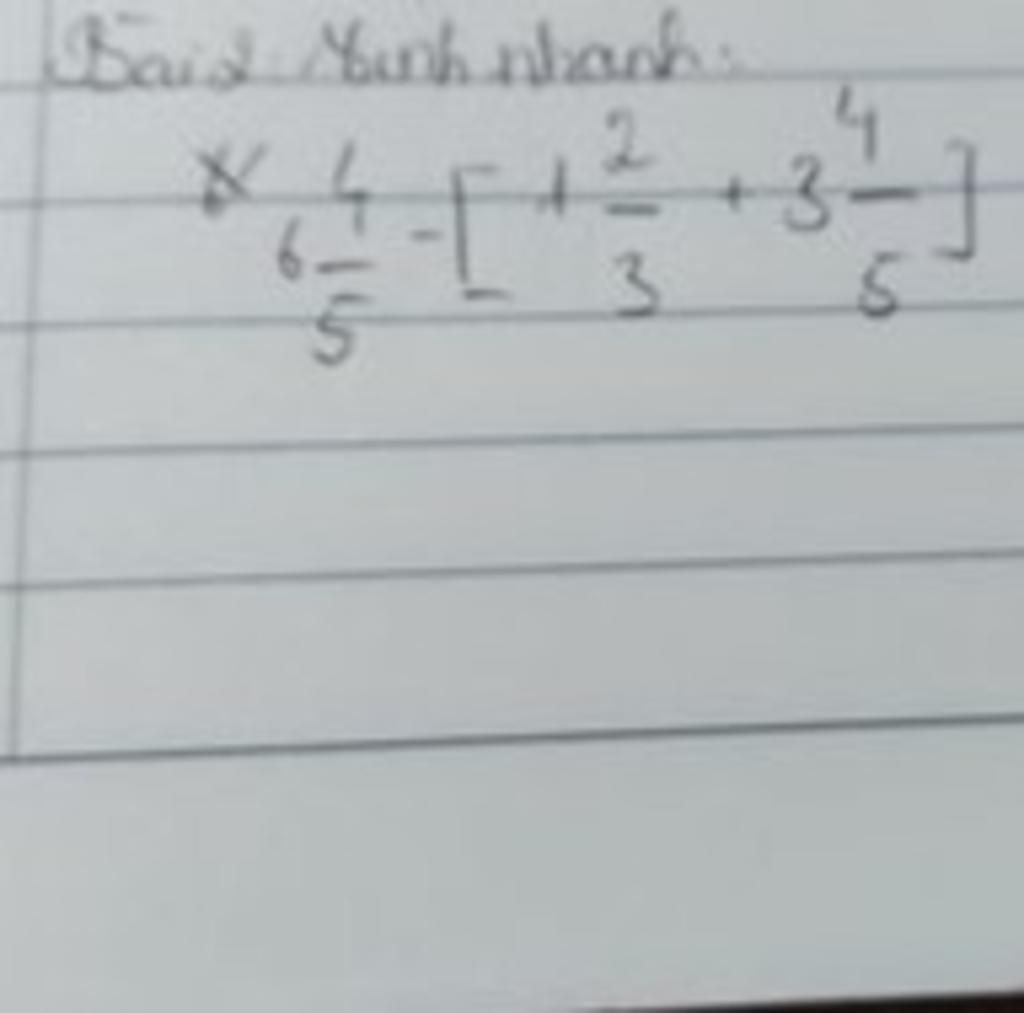 Bài 2 Tính nhanh:
6 4/5 - [ 1 2/3 + 3 4/5 ]